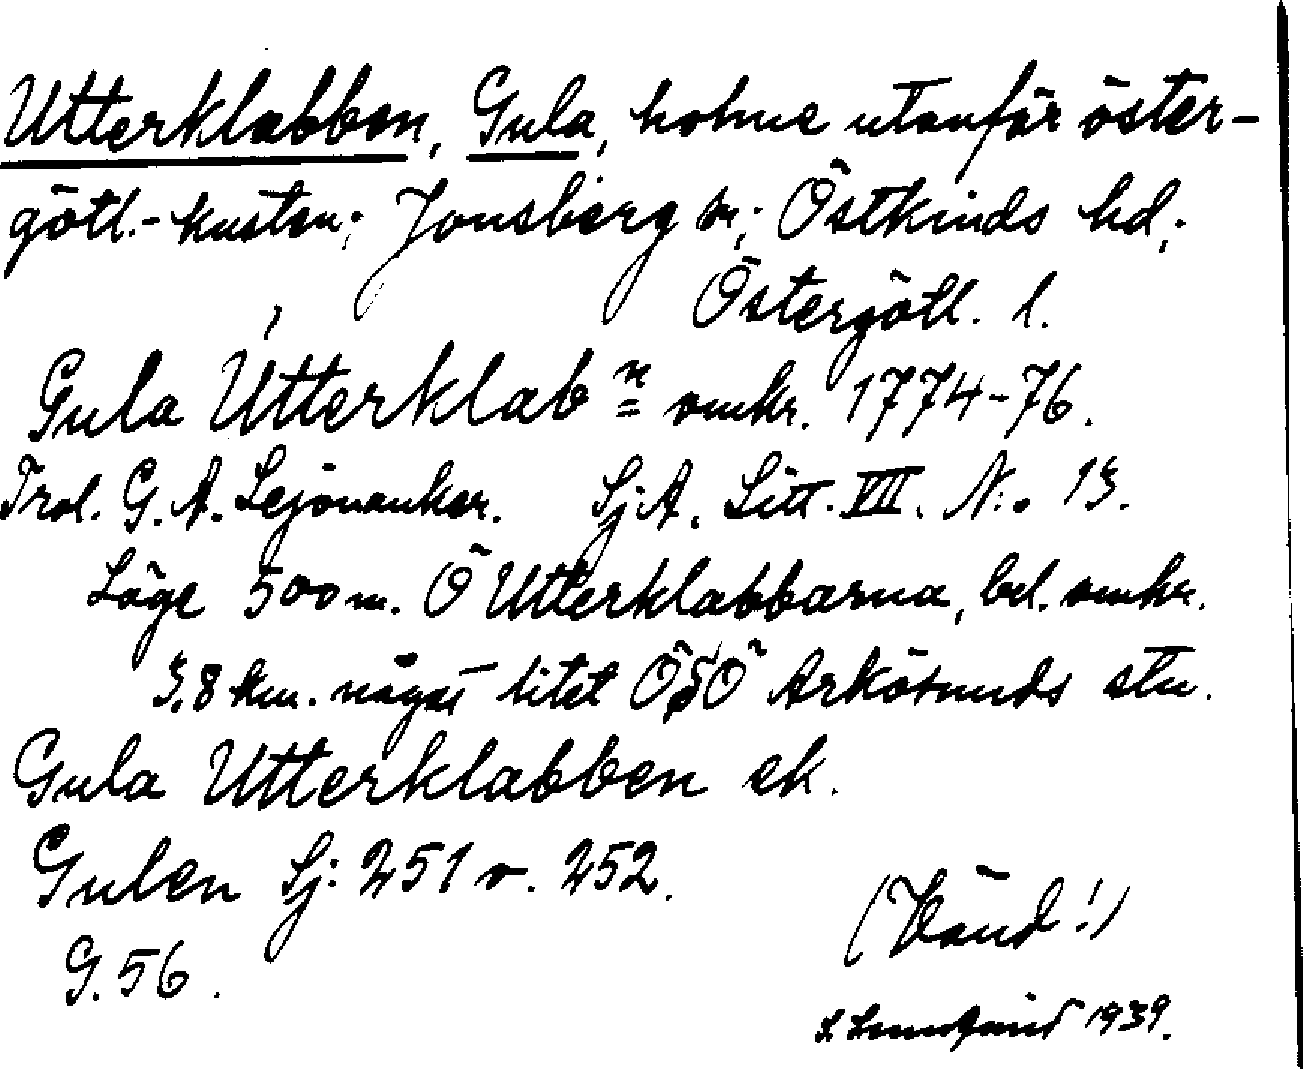 Utterklabben, Gula, holme utanför öster-
götl.-kusten; Jonsberg sn; Östkinds hd;
Östergötl. l.
Gula Utterklab n omkr. 1774-76.
Trol. G. A. Lejonanker. Sj.A. Litt. VII. N:o 13.
Läge 500 m. Ö Utterklabbarna, bel. omkr.
3,8 km. något litet ÖSÖ Arkösunds stn.
Gula Utterklabben ek.
Gulen Sj: 251 o. 252.
G. 56.
(Vänd!)
1939.